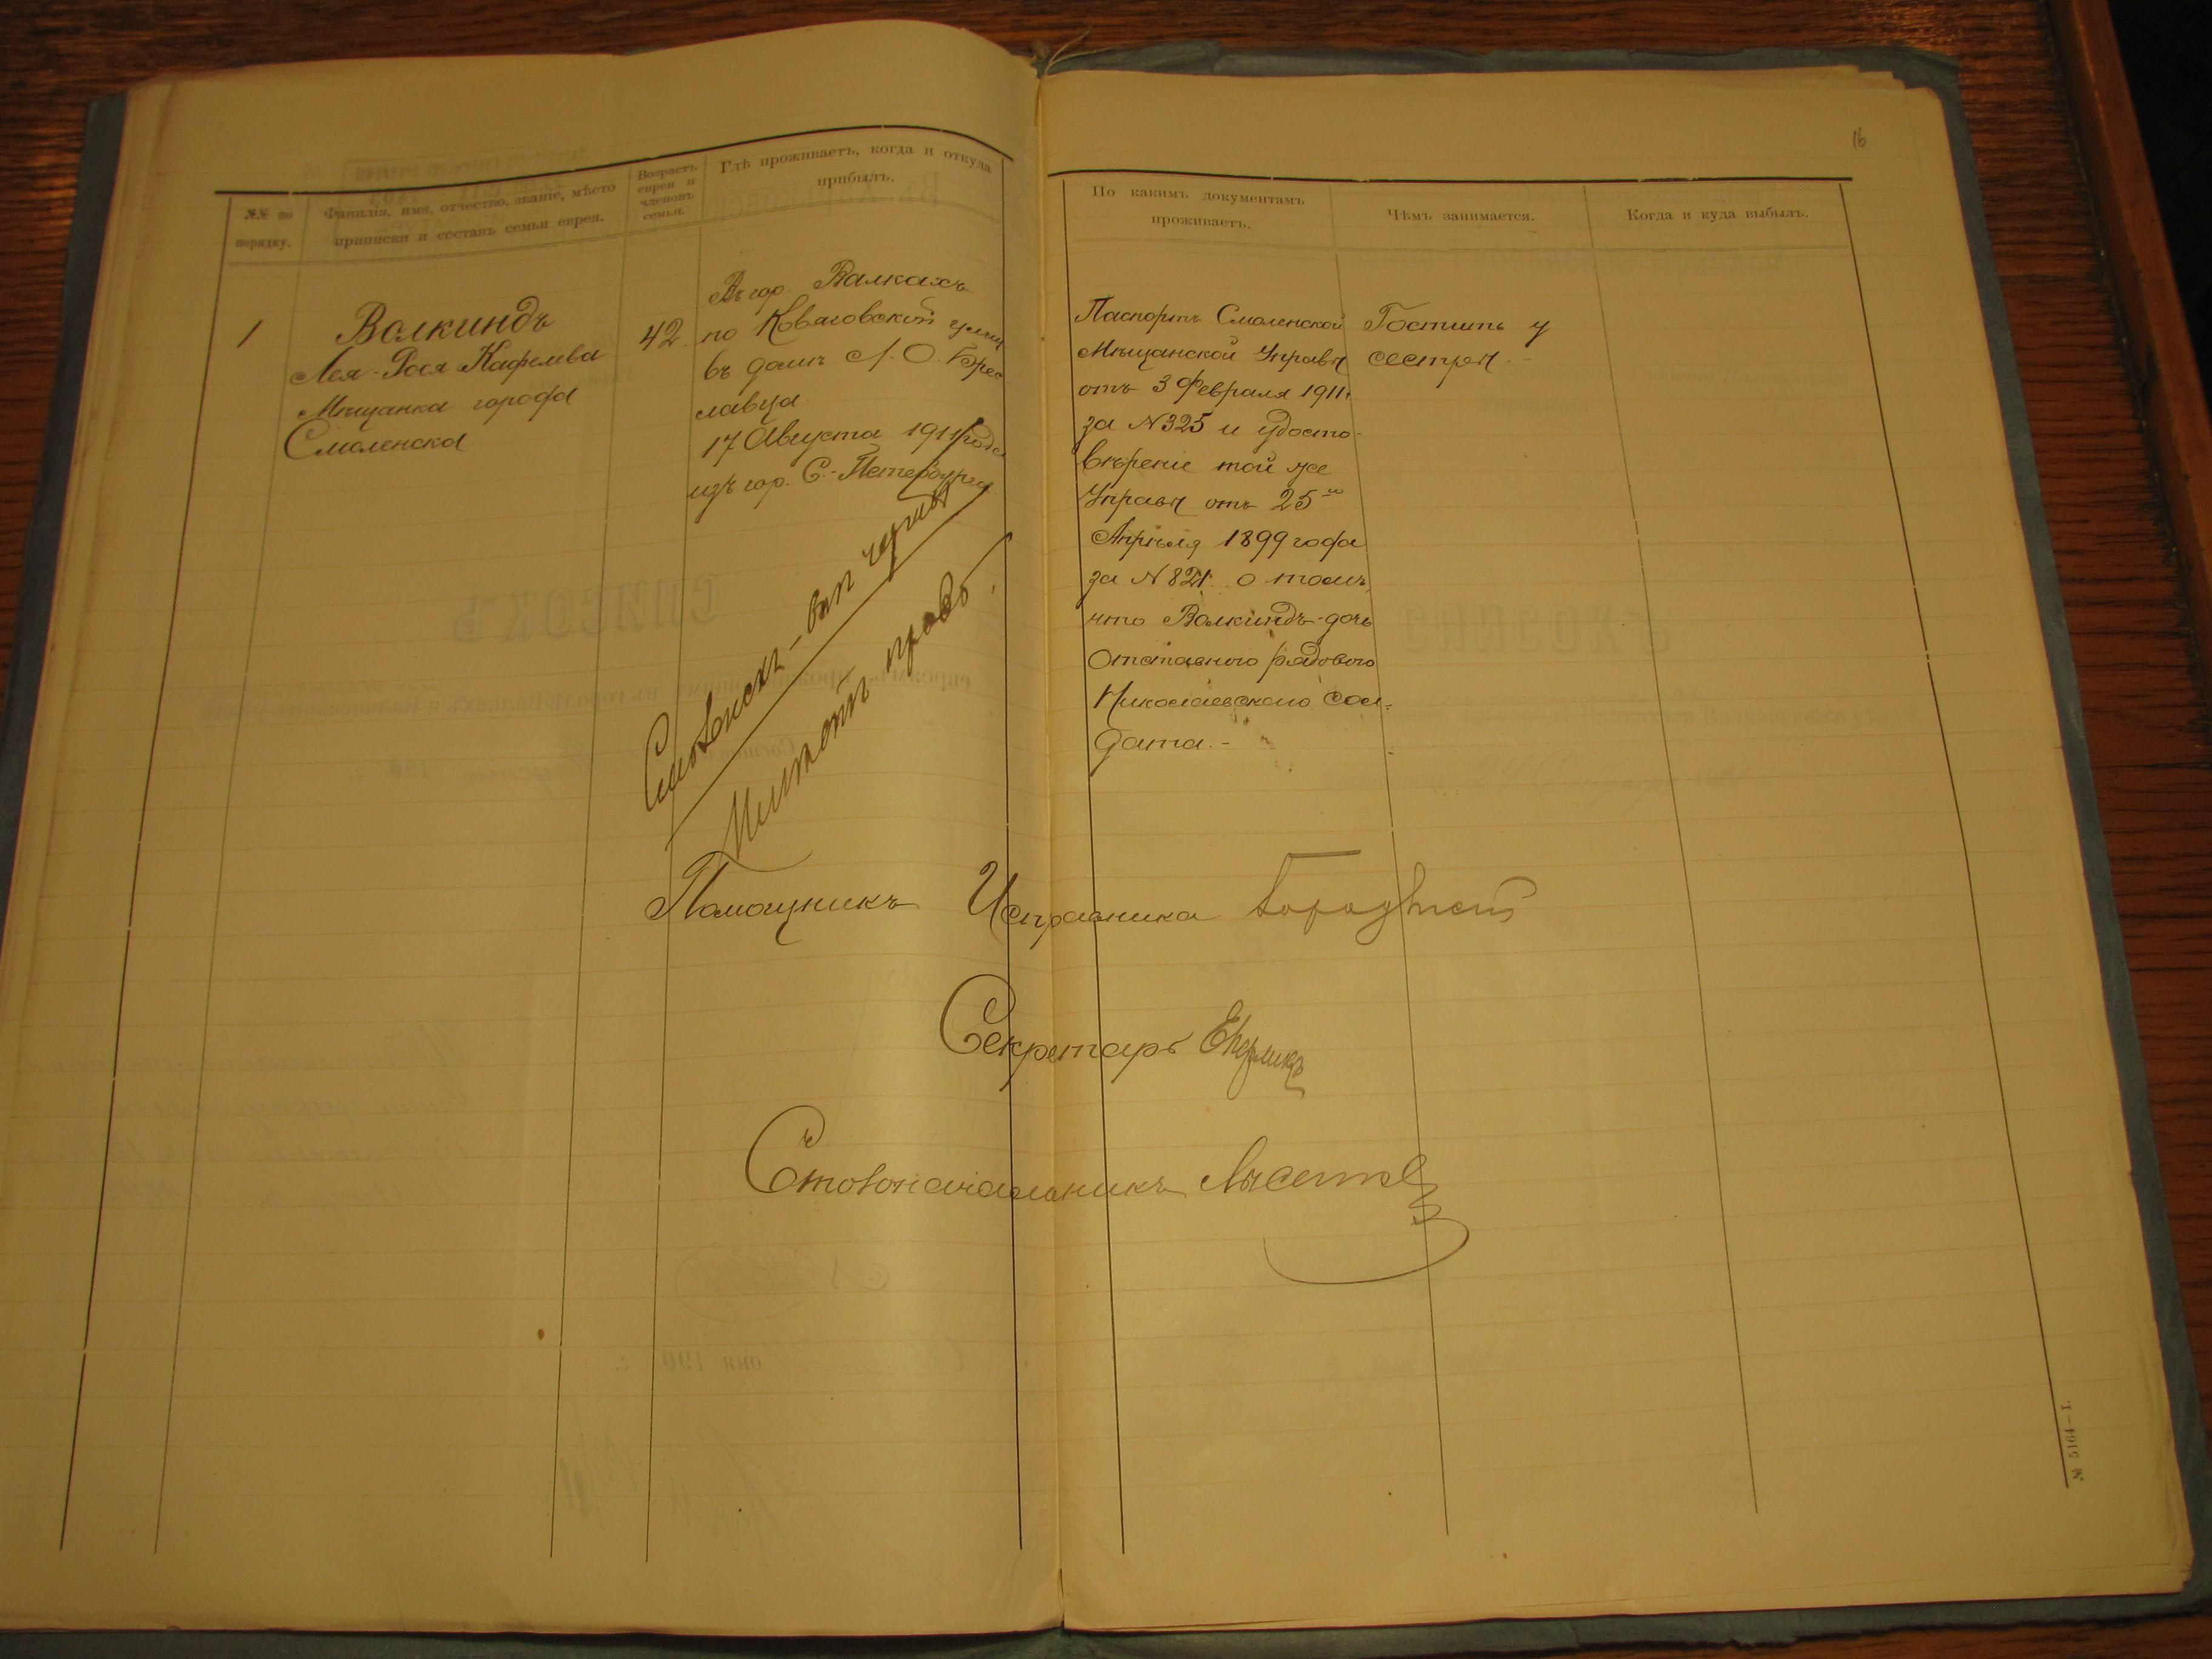 16
№№ по порядку.
Фамилія, имя, отчество, званіе, мѣсто
приписки и составъ семьи еврея.
Возрастъ
еврея и
членовъ
семьи.
Гдѣ проживаетъ, когда и откуда
прибылъ.
По какимъ документамъ
проживаетъ.
Чѣмъ занимается.
Когда и куда выбылъ.
1
Волкиндъ
Лея-Рося
Мѣщанка города
Смоленска
42
Въ гор. Валкахъ
по улиц
въ домѣ Л. О. Брес
лавца
17 Августа 1911 года
изъ гор. С.-Петербурга
Паспортъ Смоленской
Мѣщанской Управы
отъ 3 Февраля 1911 г.
за № 325 и удосто-
вѣреніе той же
Управы отъ 25го
Апрѣля 1899 года
за № 821 о томъ,
что Волкиндъ-дочь
Отставного рядового
Николаевскаго сол-
дата.-
Гоститъ у
сестры.-
Смоленскъ - внѣ черты
Имѣетъ право.
Помощникъ Исправника
Секретарь
Столоначальникъ
СПИСОКЪ
№ 5164—L